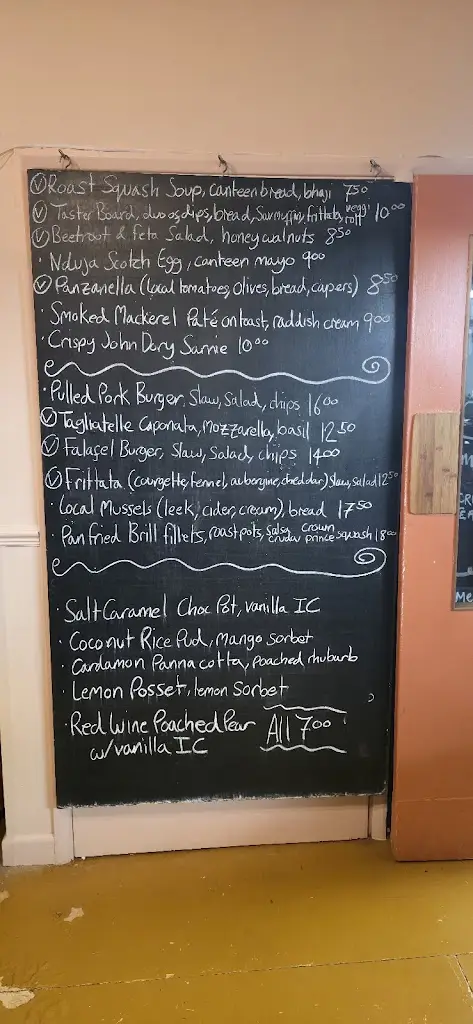 V Roast Squash Soup, canteen bread, bhaji 7.50
V Taster Board, duo of dips, bread, Surmufin, frittata, veggi roll 10.00
V Beetroot & Feta Salad, honey walnuts 8.50
· Nduja Scotch Egg, canteen mayo 9.00
V Panzanella (local tomatoes, olives, bread, capers) 8.50
· Smoked Mackerel Paté on toast, raddish cream 9.00
· Crispy John Dory Sarnie 10.00
· Pulled Pork Burger, Slaw, Salad, chips 16.00
V Tagliatelle Caponata, Mozzarella, basil 12.50
V Falafel Burger, Slaw, Salad, chips 14.00
V Frittata (courgette, fennel, aubergine, cheddar) Slaw, salad 12.50
· Local Mussels (leek, cider, cream), bread 17.50
· Pan fried Brill fillets, roast pots, salsa cruda, crown prince squash 18.00
· Salt Caramel Choc Pot, vanilla IC
· Coconut Rice Pud, Mango Sorbet
· Cardamon Pannacotta, poached rhubarb
· Lemon Posset, lemon Sorbet
· Red Wine Poached Pear
w/ vanilla IC
All 7.00